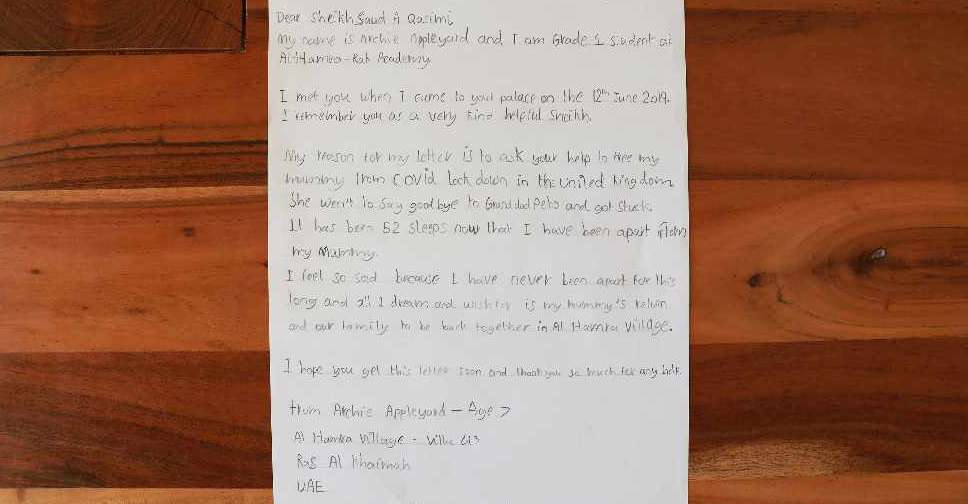 Dear Sheikh Saud A Qasimi
My name is Archie Appleyard and I am Grade 1 Student at
Al Hamra-Rak Academy
I met you when I came to your palace on the 12th June 2019.
I remember you as a very kind helpful Sheikh.
My reason for my letter is to ask your help to free my
mummy from COVID lockdown in the united kingdom
She went to Say goodbye to Grandad Pete and got stuck.
It has been 52 sleeps now that I have been apart from
my Mummy.
I feel so sad because I have never been apart for this
long and all I dream and wish for is my mummy's return
and our family to be back together in Al Hamra Village.
I hope you get this letter soon and thankyou so much for any help.
from Archie Appleyard - Age 7
Al Hamra Village - Villa
Ras Al Khaimah
UAE